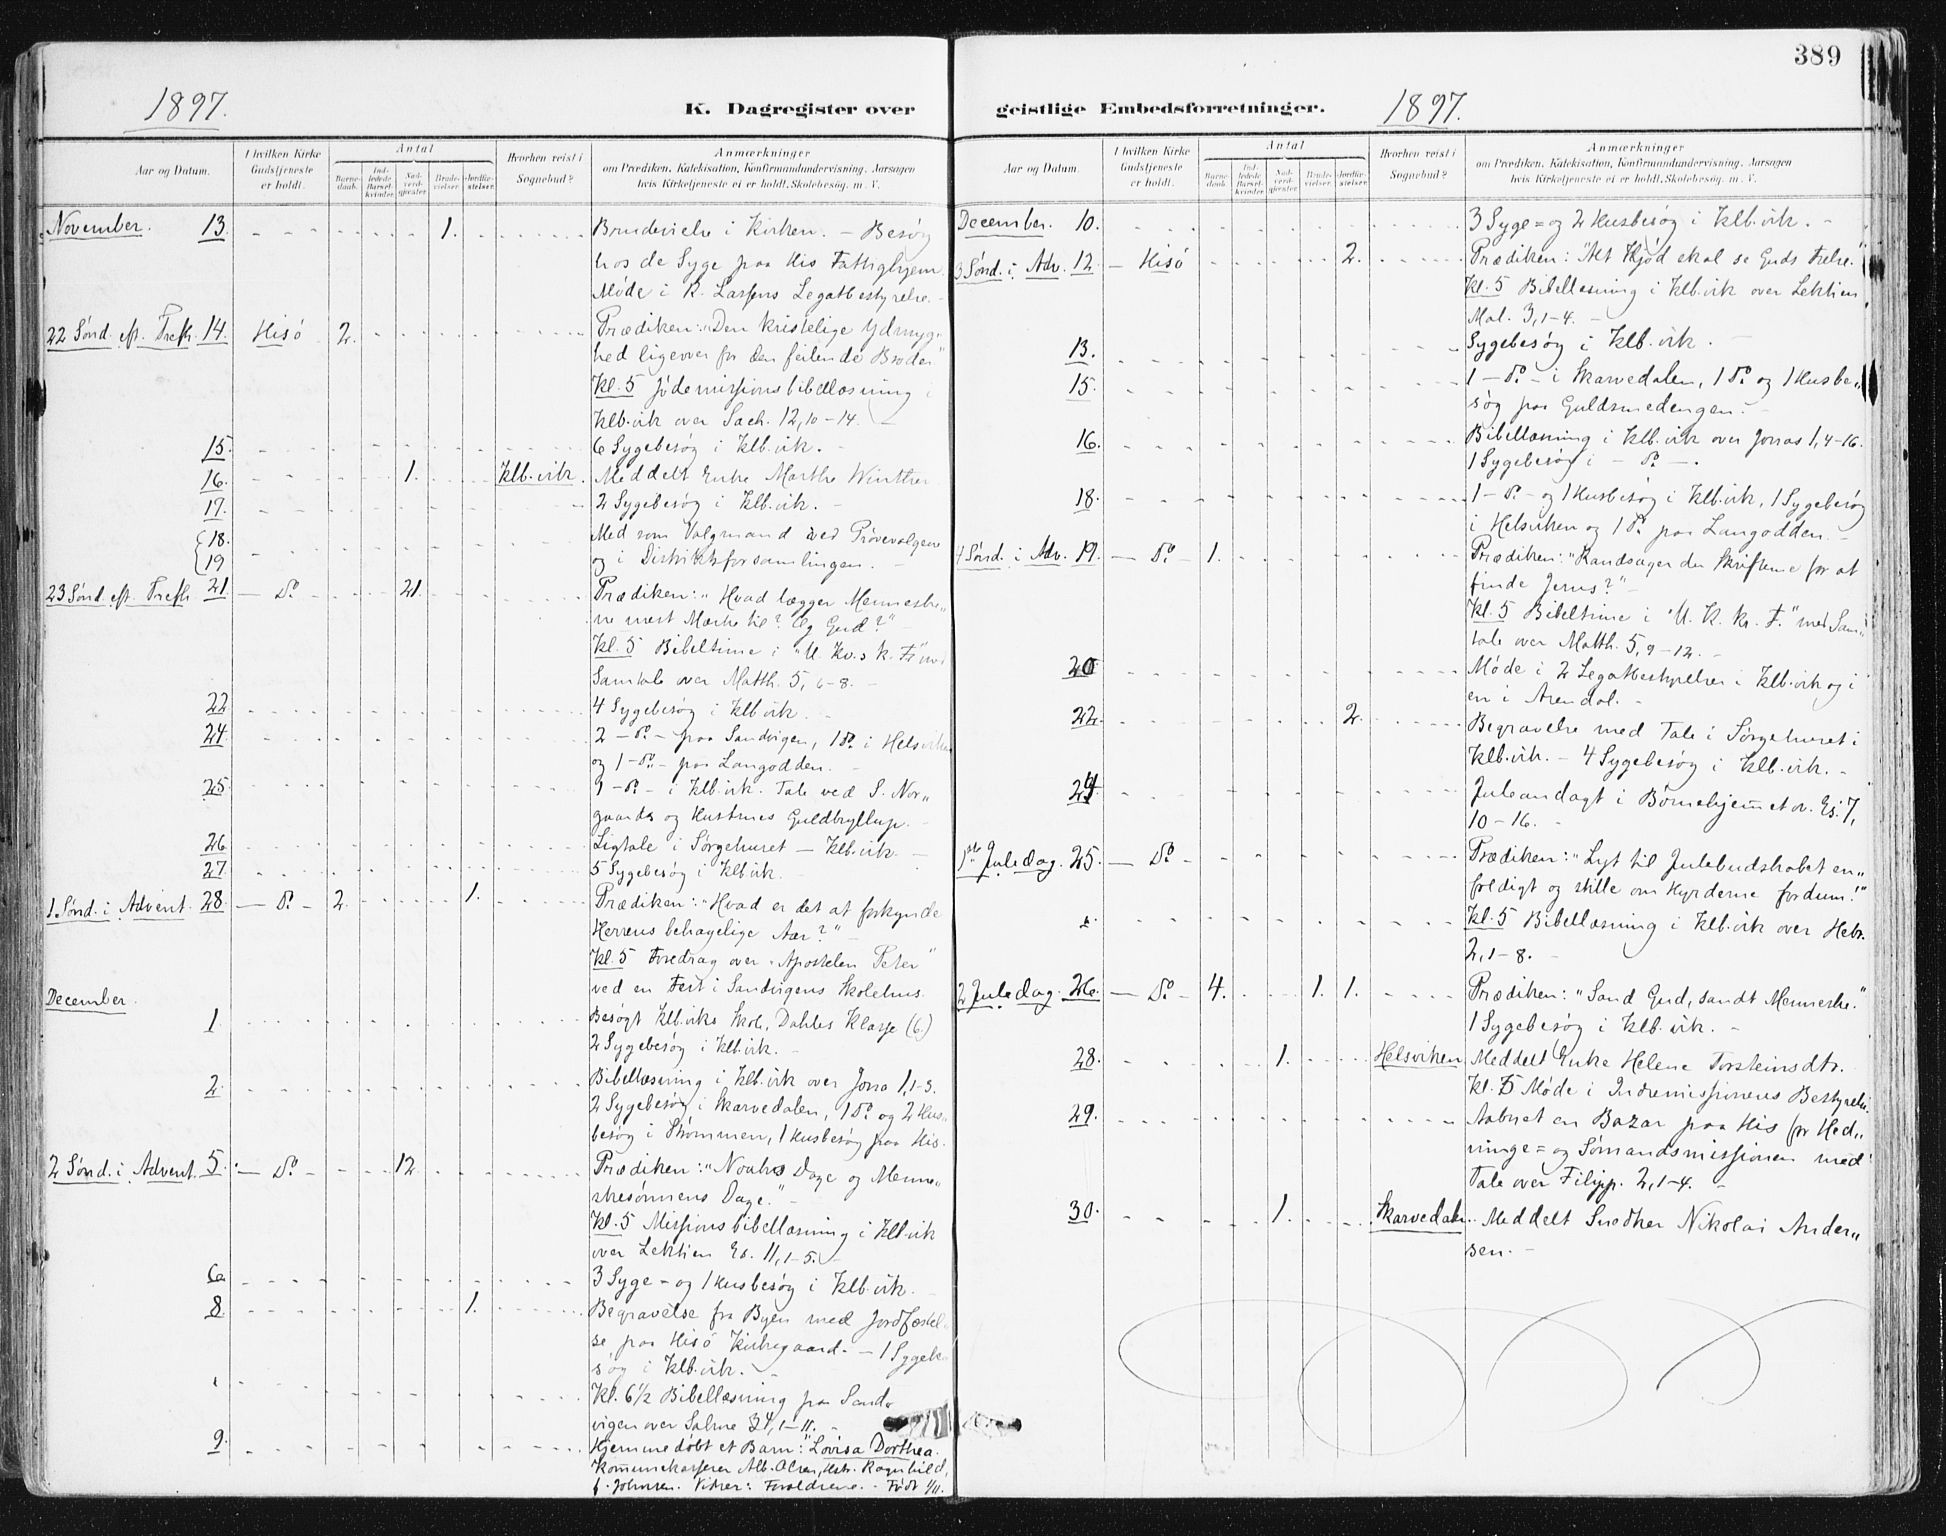 389
1897.
K. Dagregister over
geistlige Embedsforretninger.
1897.
Aar og Datum.
I hvilken Kirke Gudstjeneste er holdt.
Antal
Barnedaab.
Indledede Barselkvinder.
Nadverdgjester
Brudevielser.
Jordfæstelser.
Hvorhen reist i Sognebud?
Anmærkninger
om Prædiken, Katekisation, Konfirmandundervisning. Aarsagen
hvis Kirketjeneste ei er holdt. Skolebesøg. m. V.
November. 13. 1. Brudevielse i Kirken. – Besøg
hos de Syge paa His Fattighjem.
Møde i K. Larsens Legatbestyrelse. –
22 Sønd. eft. Trefh. 14. Hisö 2. Prædiken: "Den kristelige Ydmyg-
hed ligeover for den feilende Broder"
Kl. 5 Jødemissionsbibellæsning i
Klb.vik over Sach. 12,10–14.
15. 6 Sygebesøg i Klb.vik. –
16. 1. Klb.vik. Meddelt Enke Marthe Winther
17. 2 Sygebesøg i Klb.vik. –
18. Med som Valgmand ved Prøvevalgene
19 og i Distriktsforsamlingen. –
23 Sønd. eft. Trefh 21. – Do – 21. Prædiken: "Hvad lægger Menneske„
ne mest Mærke til? Og Gud?" –
Kl. 5 Bibeltime i "U. Kv.s K. F." med
Samtale over Matth. 5, 6–8. –
22 4 Sygebesøg i Klb.vik. –
24. 2 – Do – paa Sandvigen, 1 Do i Helsviken
og 1 – Do – paa Langodden. –
25 9 – Do – i Klb.vik. Tale ved S. Nor„
gaards og Hustrues Guldbryllup. –
26 Ligtale i Sørgehuset – Klb.vik. –
27. 5 Sygebesøg i Klb.vik. –
1. Sønd. i Advent. 28. – Do – 2. 1. Prædiken: "Hvad er det at forkynde
Herrens behagelige Aar?" –
Kl. 5 Foredrag over "Apostelen Peter"
ved en Fest i Sandvigens Skolehus.
December.
1. Besøgt Klb.viks Skole, Dahles Klasse (6.)
2 Sygebesøg i Klb.vik. –
2 Bibellæsning i Klb.vik over Jona 1,1–3.
2 Sygebesøg i Skarvedalen, 1 Do og 2 Hus„
besøg i Strømmen, 1 Husbesøg paa His.
2 Sønd. i Advent. 5. – Do – 12. Prædiken: "Noahs Dage og Menne„
skesønnens Dage." –
Kl. 5 Missionsbibellæsning i Klb.vik
over Lektien Es. 11,1–5. –
6. 3 Syge= og 1 Husbesøg i Klb.vik. –
8. 1. Begravelse fra Byen med Jordfæstel„
se paa Hisö Kirkegaard. – 1 Sygebe„
søg i Klb.vik. –
Kl. 6½ Bibellæsning paa Sand„
vigen over Salme 34,1–11. –
9. Hjemmedøbt et Barn: "Lovisa Dorthea.
Kommunekasserer Alb. Olsen, Hstr. Ragnhild,
f. Johnsen. Vidner: Forældrene. – Født 4/11.
Aar og Datum.
I hvilken Kirke Gudstjeneste er holdt.
Antal
Barnedaab.
Indledede Barselkvinder.
Nadverdgjester
Brudevielser.
Jordfæstelser.
Hvorhen reist i Sognebud?
Anmærkninger
om Prædiken, Katekisation, Konfirmandundervisning. Aarsagen
hvis Kirketjeneste ei er holdt. Skolebesøg. m. V.
December. 10. 3 Syge= og 2 Husbesøg i Klb.vik. –
3 Sønd. i Adv. 12. – Hisö 2. Prædiken: "Alt Kjød skal se Guds Frelse."
Kl. 5 Bibellæsning i Klb.vik over Lektien
Mal. 3,1–4. –
13. Sygebesøg i Klb.vik. –
15. 1 – Do – i Skarvedalen, 1 Do og 1 Husbe„
søg paa Guldsmedengen. –
16. Bibellæsning i Klb.vik over Jonas 1,4–16.
1 Sygebesøg i – Do –.
18. 1 – Do – og 1 Husbesøg i Klb.vik, 1 Sygebesøg
i Helsviken og 1 Do paa Langodden. –
4 Sønd. i Adv. 19. – Do – 1. Prædiken: "Randsager du Skrifterne for at
finde Jesus?" –
Kl. 5 Bibeltime i "U. K. kr. F." med Sam„
tale over Matth. 5,9–12. –
20 Møde i 2 Legatbestyrelser i Klb.vik og i
en i Arendal. –
22. 2. Begravelse med Tale i Sørgehuset i
Klb.vik. – 4 Sygebesøg i Klb.vik. –
24. Juleandagt i Børnehjemmet ov. Es. 7,
10–16. –
1ste Juledag. 25. – Do – Prædiken: "Lyt til Julebudskabet en„
foldigt og stille om Hyrderne fordum!"
Kl. 5 Bibellæsning i Klb.vik over Hebr.
2,1–8. –
2 Juledag. 26. – Do – 4. 1. 1. Prædiken: "Sand Gud, sandt Menneske."
1 Sygebesøg i Klb.vik. –
28. 1. Helsviken Meddelt Enke Helene Torsteinsdtr.
Kl. 5 Møde i Indremissionens Bestyrelse.
29. Aabnet en Bazar paa His for Hed„
ninge= og Sømandsmissionen med
Tale over Filipp. 2,1–4. –
30. 1. Skarvedalen. Meddelt Snedker Nikolai Ander„
sen. –